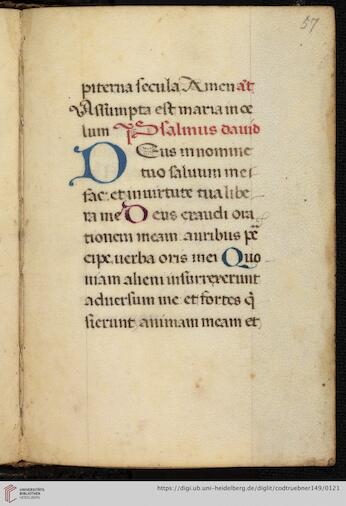 57
piterna secula Amen añt
Assumpta est maria in ce
lum Psalmus david
DEus in nomine
tuo salvum me
fac: et in virtute tua libe
ra me Deus exaudi ora
tionem meam auribus p̄
cipe verba oris mei Quo
niam alieni insurrexerunt
adversum me et fortes q̄
sierunt animam meam et
UNIVERSITÄTS-
BIBLIOTHEK
HEIDELBERG
https://digi.ub.uni-heidelberg.de/diglit/codtruebner149/0121